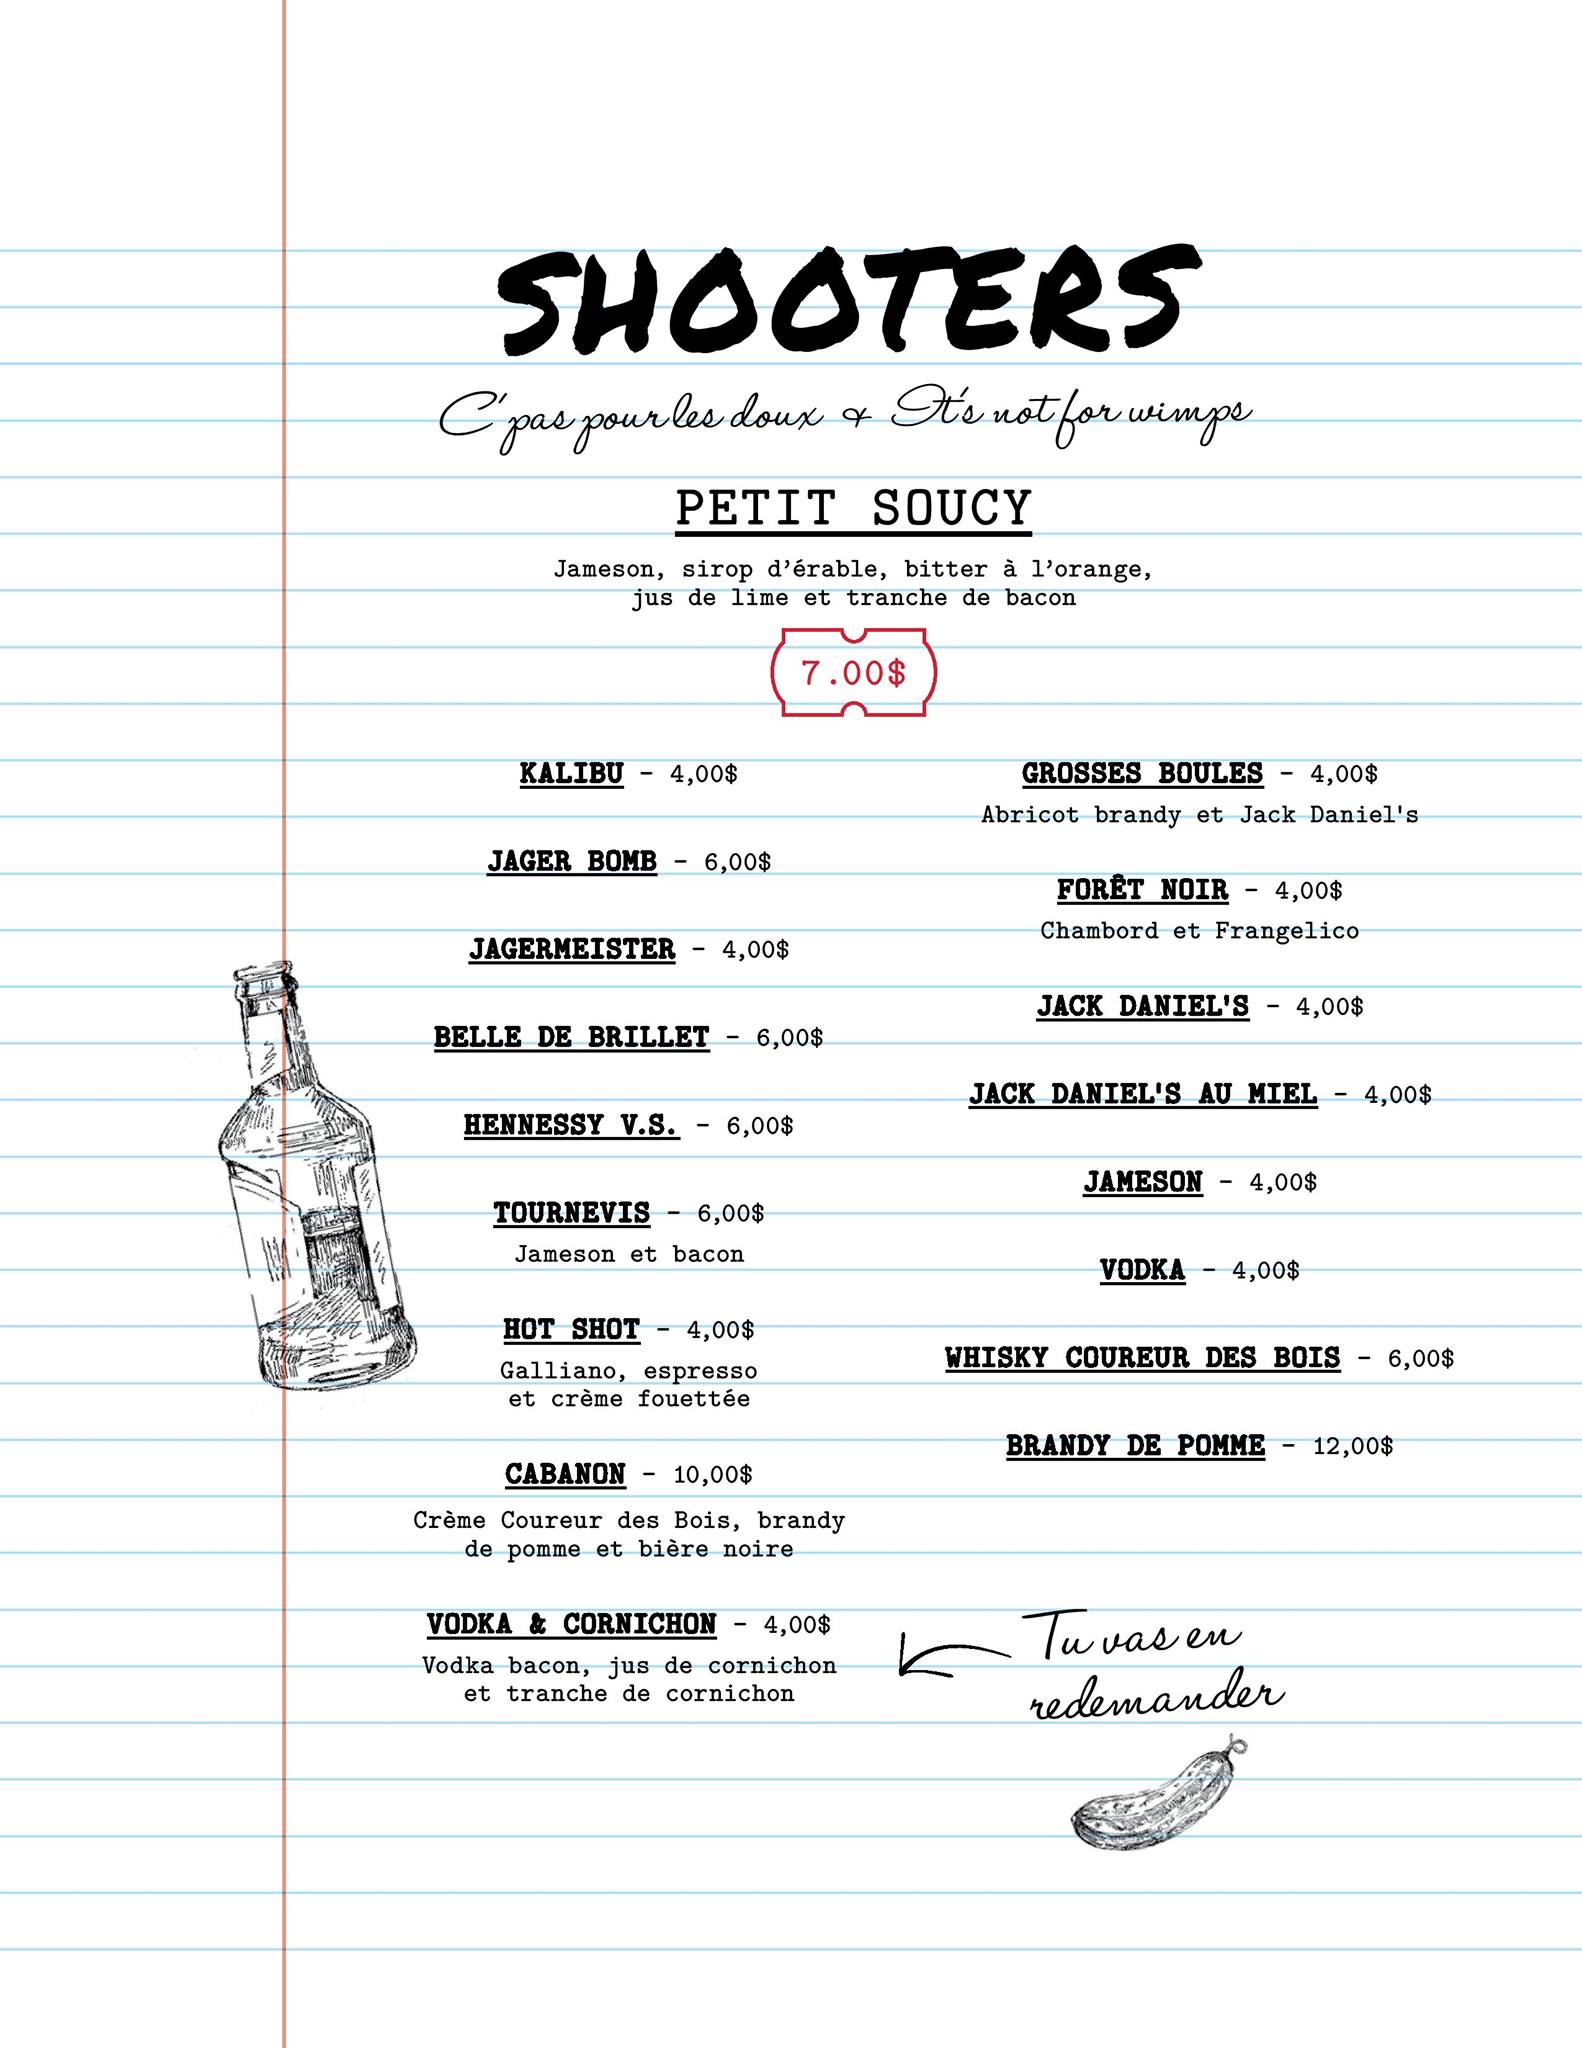 SHOOTERS
C'pas pour les doux & It's not for wimps
PETIT SOUCY
Jameson, sirop d’érable, bitter à l’orange,
jus de lime et tranche de bacon
7.00$
KALIBU - 4,00$
JAGER BOMB - 6,00$
JAGERMEISTER - 4,00$
BELLE DE BRILLET - 6,00$
HENNESSY V.S. - 6,00$
TOURNEVIS - 6,00$
Jameson et bacon
HOT SHOT - 4,00$
Galliano, espresso
et crème fouettée
CABANON - 10,00$
Crème Coureur des Bois, brandy
de pomme et bière noire
VODKA & CORNICHON - 4,00$
Vodka bacon, jus de cornichon
et tranche de cornichon
GROSSES BOULES - 4,00$
Abricot brandy et Jack Daniel's
FORÊT NOIR - 4,00$
Chambord et Frangelico
JACK DANIEL'S - 4,00$
JACK DANIEL'S AU MIEL - 4,00$
JAMESON - 4,00$
VODKA - 4,00$
WHISKY COUREUR DES BOIS - 6,00$
BRANDY DE POMME - 12,00$
Tu vas en
redemander